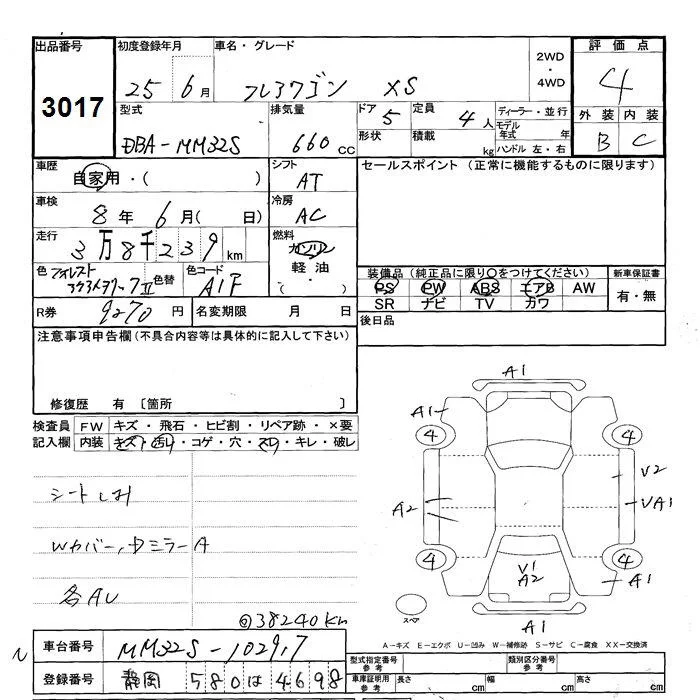 出品番号 初度登録年月 車名・グレード 評価点
3017 25 6月 フレアワゴン XS 2WD・4WD 4
型式 排気量 ドア 5 定員 4人 ディーラー・並行 外装 内装
DBA-MM32S 660cc 形状 積載 kg モデル年式 年 ハンドル 左・右 B C
車歴 シフト セールスポイント (正常に機能するものに限ります)
自家用・( ) AT
車検 冷房
8年 6月( 日) AC
走行 燃料
3万8千239km ガソリン
軽油
色 フォレスト 色替 色コード ・( )
A1F
装備品 (純正品に限り○をつけてください) 新車保証書
PS PW ABS エアB AW 有・無
SR ナビ TV カワ
R券 9270円 名変期限 月 日
後日品
注意事項申告欄 (不具合内容等は具体的に記入して下さい)
修復歴 有 〔箇所 〕
検査員 FW キズ・飛石・ヒビ割・リペア跡・×要
記入欄 内装 キズ・汚レ・コゲ・穴・スレ・キレ・破レ
シートしみ
Wカバー、Dミラー A
各AU
@38240km
A1
A1
4 4
V2
A2 VA1
4 4
V1
A2 A1
スペア A1
A-キズ E-エクボ U-凹み W-補修跡 S-サビ C-腐食 XX-交換済
車台番号 MM32S-102917 型式指定番号 参考 類別区分番号 参考
登録番号 静岡 580 は 4698 車庫証明用 参考 長さ cm 幅 cm 高さ cm